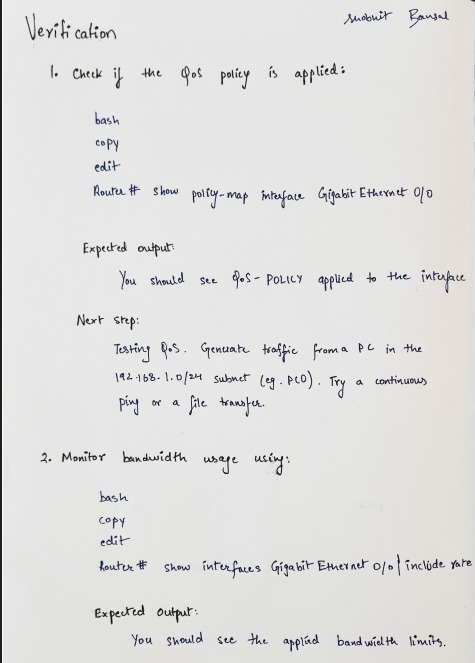 Verification
Shobhit Bansal
1. Check if the QoS policy is applied:
bash
copy
edit
Router # show policy-map interface Gigabit Ethernet 0/0
Expected output:
You should see QoS-POLICY applied to the interface
Next step:
Testing QoS. Generate traffic from a PC in the
192.168.1.0/24 subnet (eg. PC0). Try a continuous
ping or a file transfer.
2. Monitor bandwidth usage using:
bash
copy
edit
Router # show interfaces Gigabit Ethernet 0/0 | include rate
Expected Output:
You should see the applied bandwidth limits.